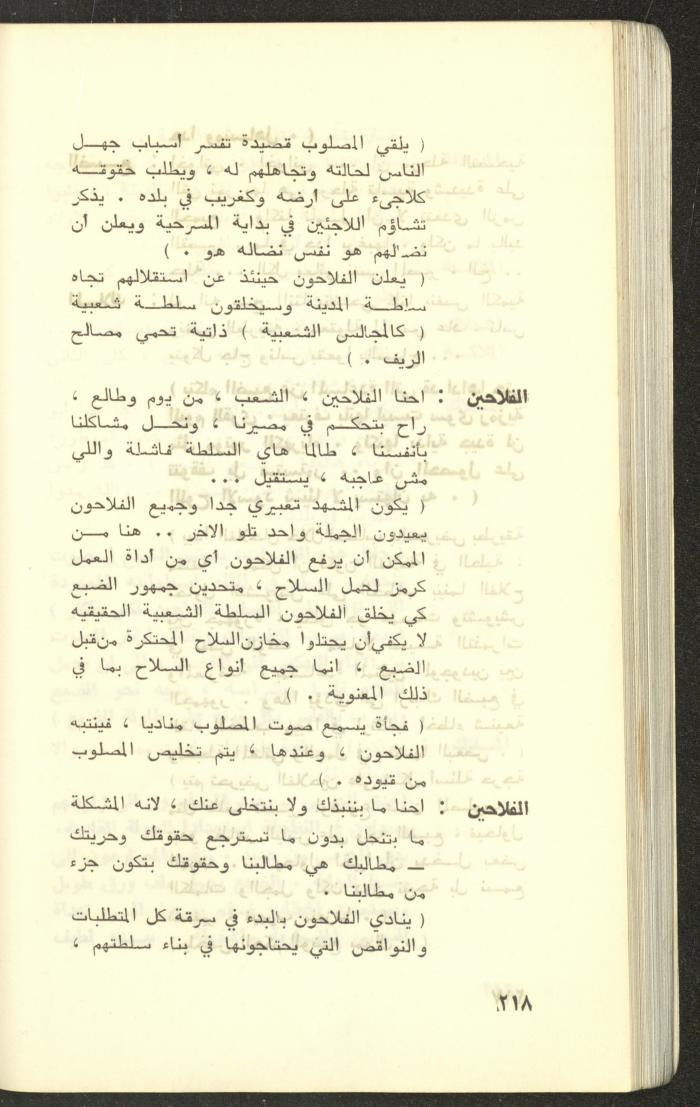 ( يلقي المصلوب قصيدة تفسر اسباب جهــل
الناس لحالته وتجاهلهم له ، ويطلب حقوقــه
كلاجىء على أرضه وكغريب في بلده . يذكر
تشاؤم اللاجئين في بداية المسرحية ويعلن أن
نضالهم هو نفس نضاله هو . )
( يعلن الفلاحون حينئذ عن استقلالهم تجاه
سلطــة المدينة وسيخلقون سلطــة شعبية
( كالمجالس الشعبية ) ذاتية تحمي مصالح
الريف . )
الفلاحين : احنا الفلاحين ، الشعب ، من يوم وطالع ،
راح بتحكــم في مصيرنا ، ونحــل مشاكلنا
بأنفسنا ، طالما هاي السلطة فاشلة واللي
مش عاجبه ، يستقيل ...
( يكون المشهد تعبيري جدا وجميع الفلاحون
يعيدون الجملة واحد تلو الاخر .. هنا مــن
الممكن أن يرفع الفلاحون أي من أداة العمل
كرمز لحمل السلاح ، متحدين جمهور الضبع
كي يخلق الفلاحون السلطة الشعبية الحقيقيه
لا يكفي أن يحتلوا مخازن السلاح المحتكرة من قبل
الضبع ، انما جميع أنواع السلاح بما في
ذلك المعنوية . )
( فجأة يسمع صوت المصلوب مناديا ، فينتبه
الفلاحون ، وعندها ، يتم تخليص المصلوب
من قيوده . )
الفلاحين : احنا ما بننبذك ولا بنتخلى عنك ، لانه المشكلة
ما بتنحل بدون ما تسترجع حقوقك وحريتك
ــ مطالبك هي مطالبنا وحقوقك بتكون جزء
من مطالبنا .
( ينادي الفلاحون بالبدء في سرقة كل المتطلبات
والنواقص التي يحتاجونها في بناء سلطتهم ،
٢١٨